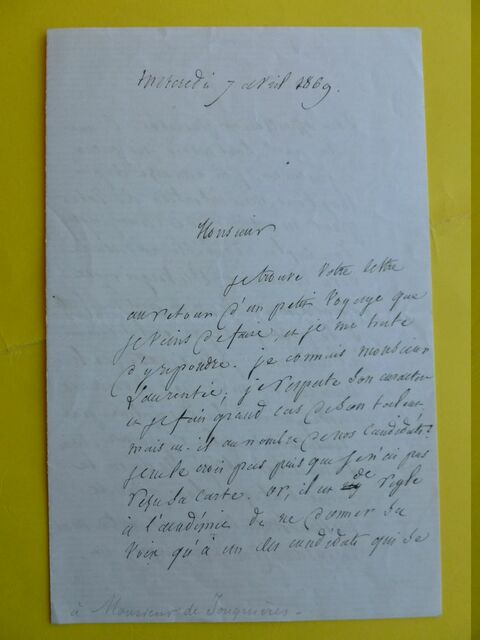 Mercredi 7 avril 1869.
Monsieur
je trouve votre lettre
au retour d'un petit voyage que
je viens de faire, et je me hate
d'y repondre. je connais monsieur
Laurentie, je respecte son caractere
et je fais grand cas de son talent
mais est-il au nombre de nos candidats?
je ne le crois pas puis que je n'ai pas
reçu sa carte. or, il est de regle
à l'académie de ne donner sa
voix qu'à un des candidats qui se
à Monsieur de Jonquières.